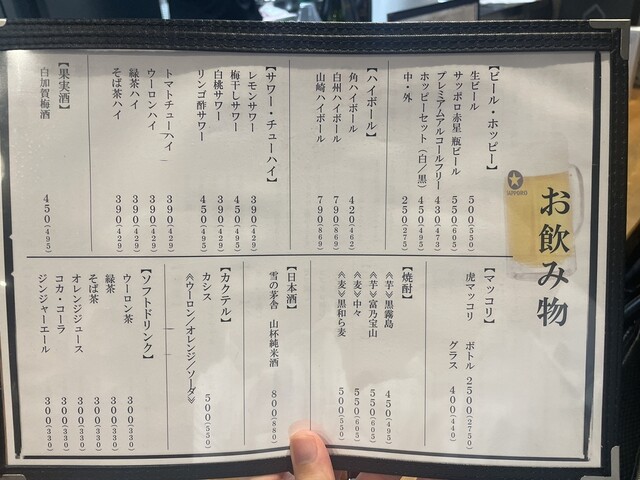 お飲み物
SAPPORO
【ビール・ホッピー】
生ビール 500(550)
サッポロ赤星 瓶ビール 550(605)
プレミアムアルコールフリー 430(473)
ホッピーセット(白/黒) 450(495)
中・外 250(275)
【ハイボール】
角ハイボール 420(462)
白州ハイボール 790(869)
山崎ハイボール 790(869)
【サワー・チューハイ】
レモンサワー 390(429)
梅干しサワー 450(495)
白桃サワー 390(429)
リンゴ酢サワー 450(495)
トマトチューハイ 390(429)
ウーロンハイ 390(429)
緑茶ハイ 390(429)
そば茶ハイ 390(429)
【果実酒】
白加賀梅酒 450(495)
【マッコリ】
虎マッコリ ボトル 2500(2750)
グラス 400(440)
【焼酎】
≪芋≫黒霧島 450(495)
≪芋≫富乃宝山 550(605)
≪麦≫中々 550(605)
≪麦≫黒和ら麦 500(550)
【日本酒】
雪の茅舎 山杯純米酒 800(880)
【カクテル】
カシス
≪ウーロン/オレンジ/ソーダ≫ 500(550)
【ソフトドリンク】
ウーロン茶 300(330)
緑茶 300(330)
そば茶 300(330)
オレンジジュース 300(330)
コカ・コーラ 300(330)
ジンジャーエール 300(330)